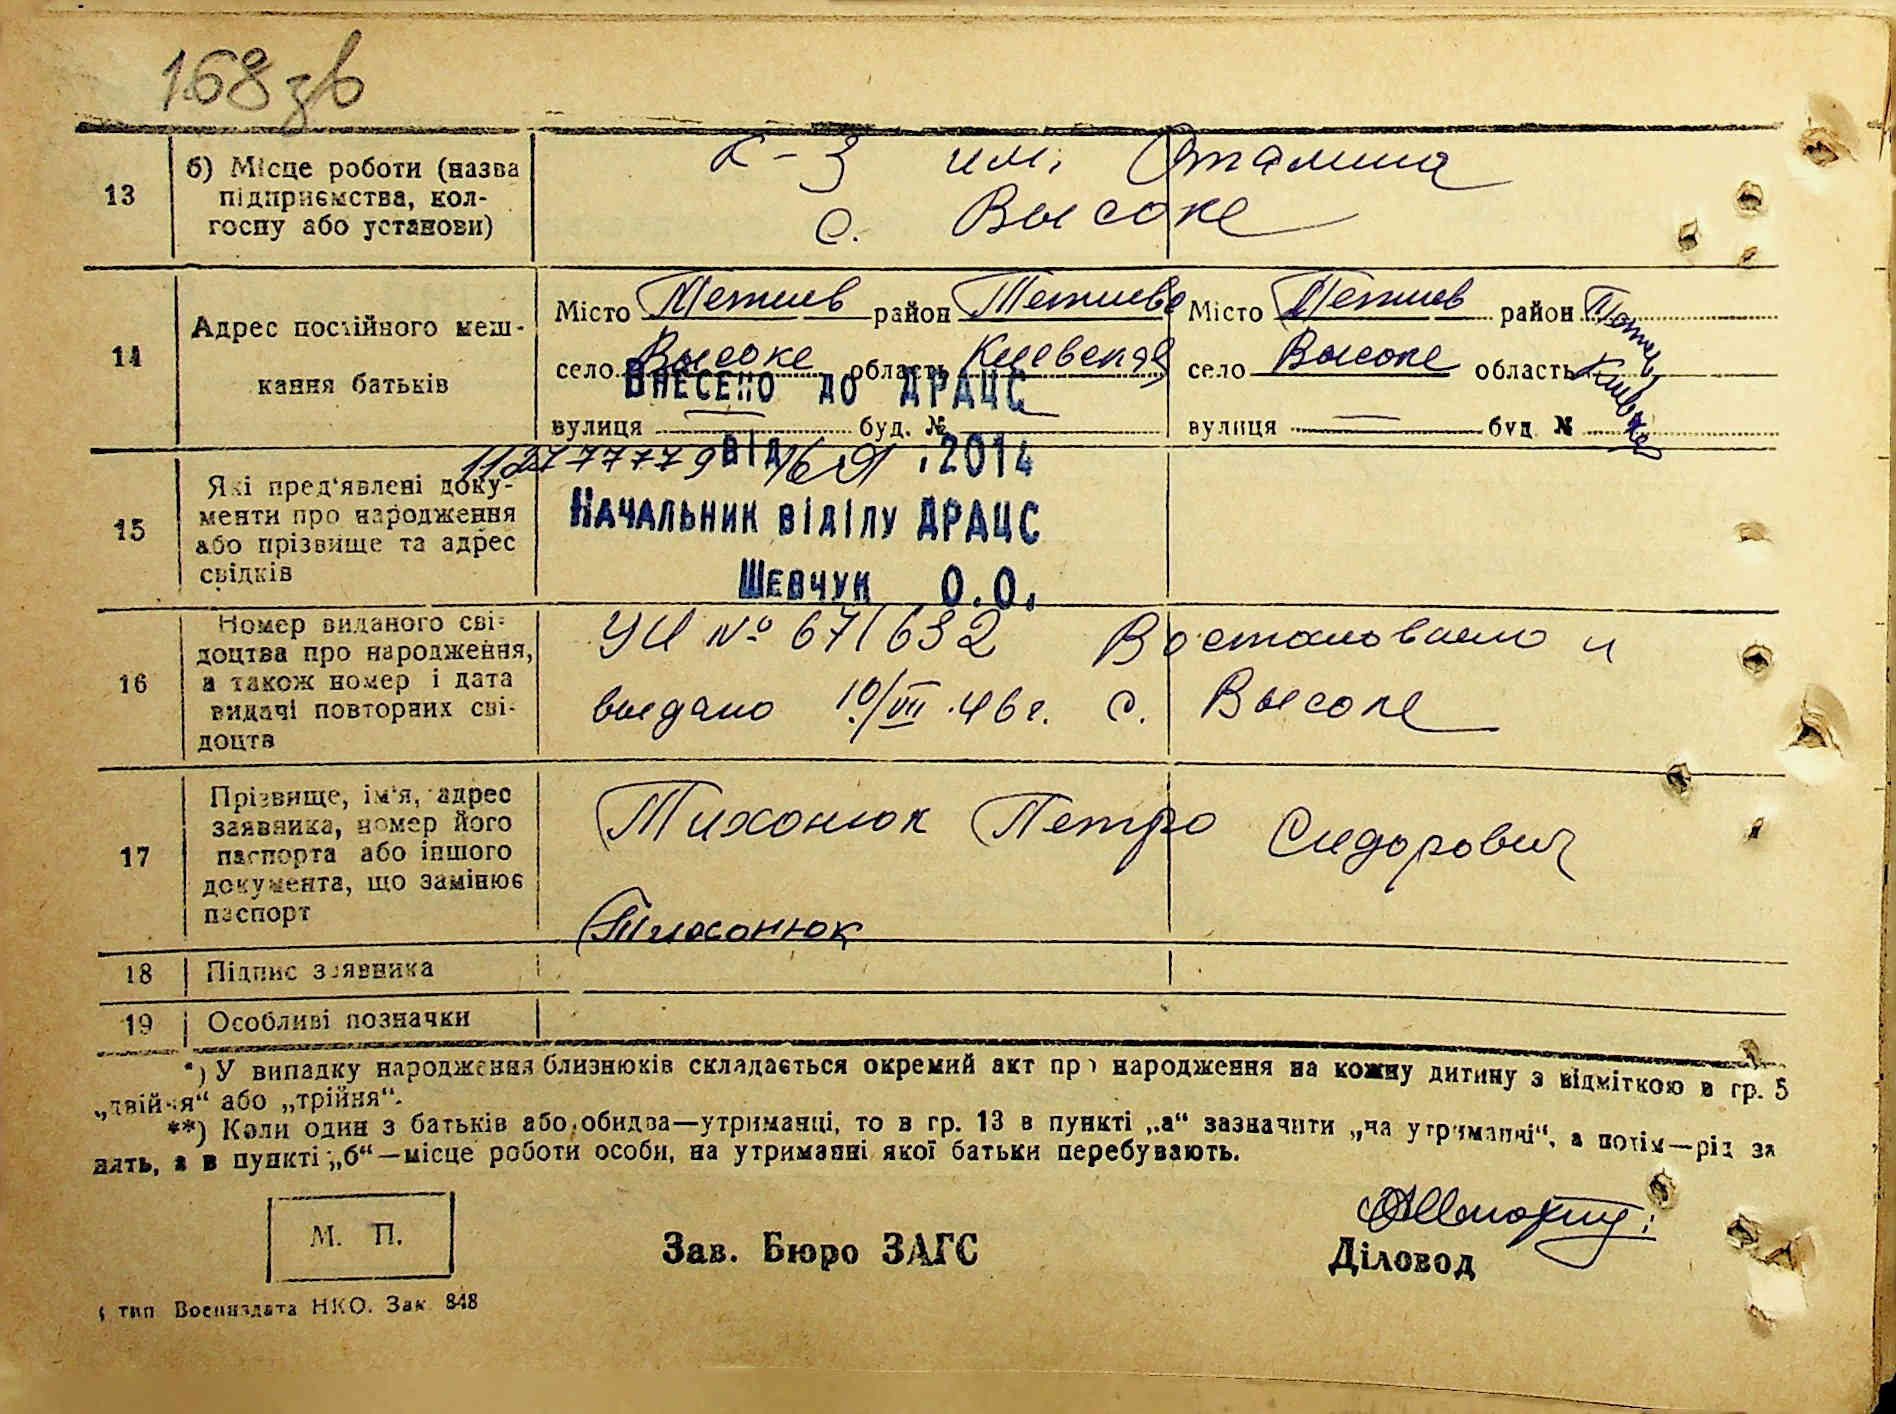 168 зв
13
б) Місце роботи (назва
підприємства, кол-
госпу або установи)
к-з им. Сталина
с. Высоке
14
Адрес постійного меш-
кання батьків
Місто Тетиев район Тетиевс
село Высоке область Киевская
вулиця — буд. №
Місто Тетиев район Тетиев
село Высоке область Киевск
вулиця — буд №
Внесено до ДРАЦС
1127777779 від 16 01 .2014
Начальник відділу ДРАЦС
Шевчук О.О.
15
Які пред'явлені доку-
менти про народження
або прізвище та адрес
свідків
16
Номер виданого сві-
доцтва про народження,
а також номер і дата
видачі повторних сві-
доцтв
УИ № 671632 Востановлено и
выдано 10/VII 46 г. с. Высоке
17
Прізвище, ім'я, адрес
заявника, номер його
паспорта або іншого
документа, що замінює
паспорт
Тихонюк Петро Сидорович
Тихонюк
18
Підпис заявника
19
Особливі позначки
*) У випадку народження близнюків складається окремий акт про народження на кожну дитину з відміткою в гр. 5
„двійня“ або „трійня“.
**) Коли один з батьків або обидва—утриманці, то в гр. 13 в пункті „а“ зазначити „на утриманні“, а потім—рід за
нять, а в пункті „б“—місце роботи особи, на утриманні якої батьки перебувають.
М. П.
Зав. Бюро ЗАГС
Діловод
тип Воениздата НКО. Зак 848